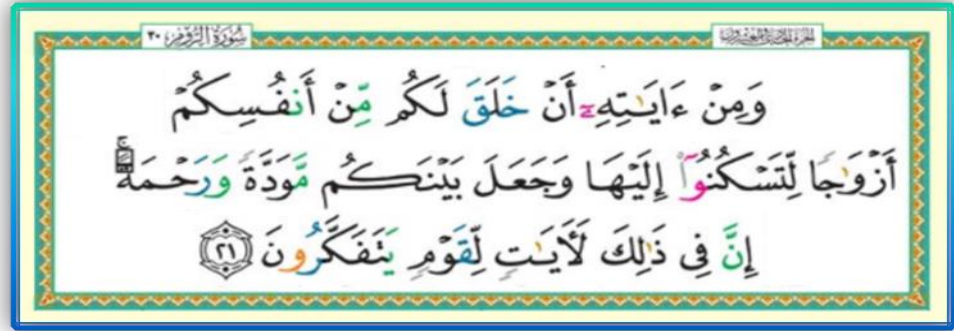 سُورَةُ الرُّومِ ٣٠
وَمِنْ ءَايَـٰتِهِۦٓ أَنْ خَلَقَ لَكُم مِّنْ أَنفُسِكُمْ
أَزْوَٰجًا لِّتَسْكُنُوٓا۟ إِلَيْهَا وَجَعَلَ بَيْنَكُم مَّوَدَّةً وَرَحْمَةً ۚ
إِنَّ فِى ذَٰلِكَ لَـَٔايَـٰتٍ لِّقَوْمٍ يَتَفَكَّرُونَ ٢١